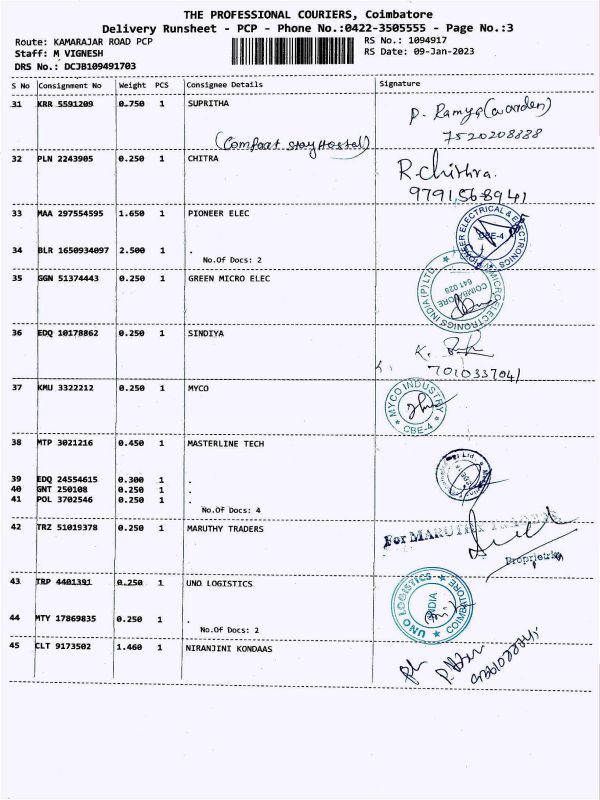 THE PROFESSIONAL COURIERS, Coimbatore
Delivery Runsheet - PCP - Phone No.:0422-3505555 - Page No.:3
Route: KAMARAJAR ROAD PCP RS No.: 1094917
Staff: M VIGNESH RS Date: 09-Jan-2023
DRS No.: DCJB109491703
S No Consignment No Weight PCS Consignee Details Signature
31 KRR 5591209 0.750 1 SUPRITHA P. Ramya (warden)
7520208888
(Comfort stay Hostel)
32 PLN 2243905 0.250 1 CHITRA R.Chithra.
9791568941
33 MAA 297554595 1.650 1 PIONEER ELEC PIONEER ELECTRICAL & ELECTRONICS CBE-4
34 BLR 1650934097 2.500 1 .
No.Of Docs: 2
35 GGN 51374443 0.250 1 GREEN MICRO ELEC MICROELECTRONICS INDIA (P) LTD COIMBATORE 641 028
36 EDQ 10178862 0.250 1 SINDIYA K.
7010337041
37 KMU 3322212 0.250 1 MYCO MYCO INDUSTRY CBE-4
38 MTP 3021216 0.450 1 MASTERLINE TECH
39 EDQ 24554615 0.300 1 .
40 GNT 250108 0.250 1 .
41 POL 3702546 0.250 1 .
No.Of Docs: 4
42 TRZ 51019378 0.250 1 MARUTHY TRADERS For MARUTHY TRADERS
Proprietrix
43 TRP 4401391 0.250 1 UNO LOGISTICS UNO LOGISTICS COIMBATORE INDIA
44 MTY 17869835 0.250 1 .
No.Of Docs: 2
45 CLT 9173502 1.460 1 NIRANJINI KONDAAS